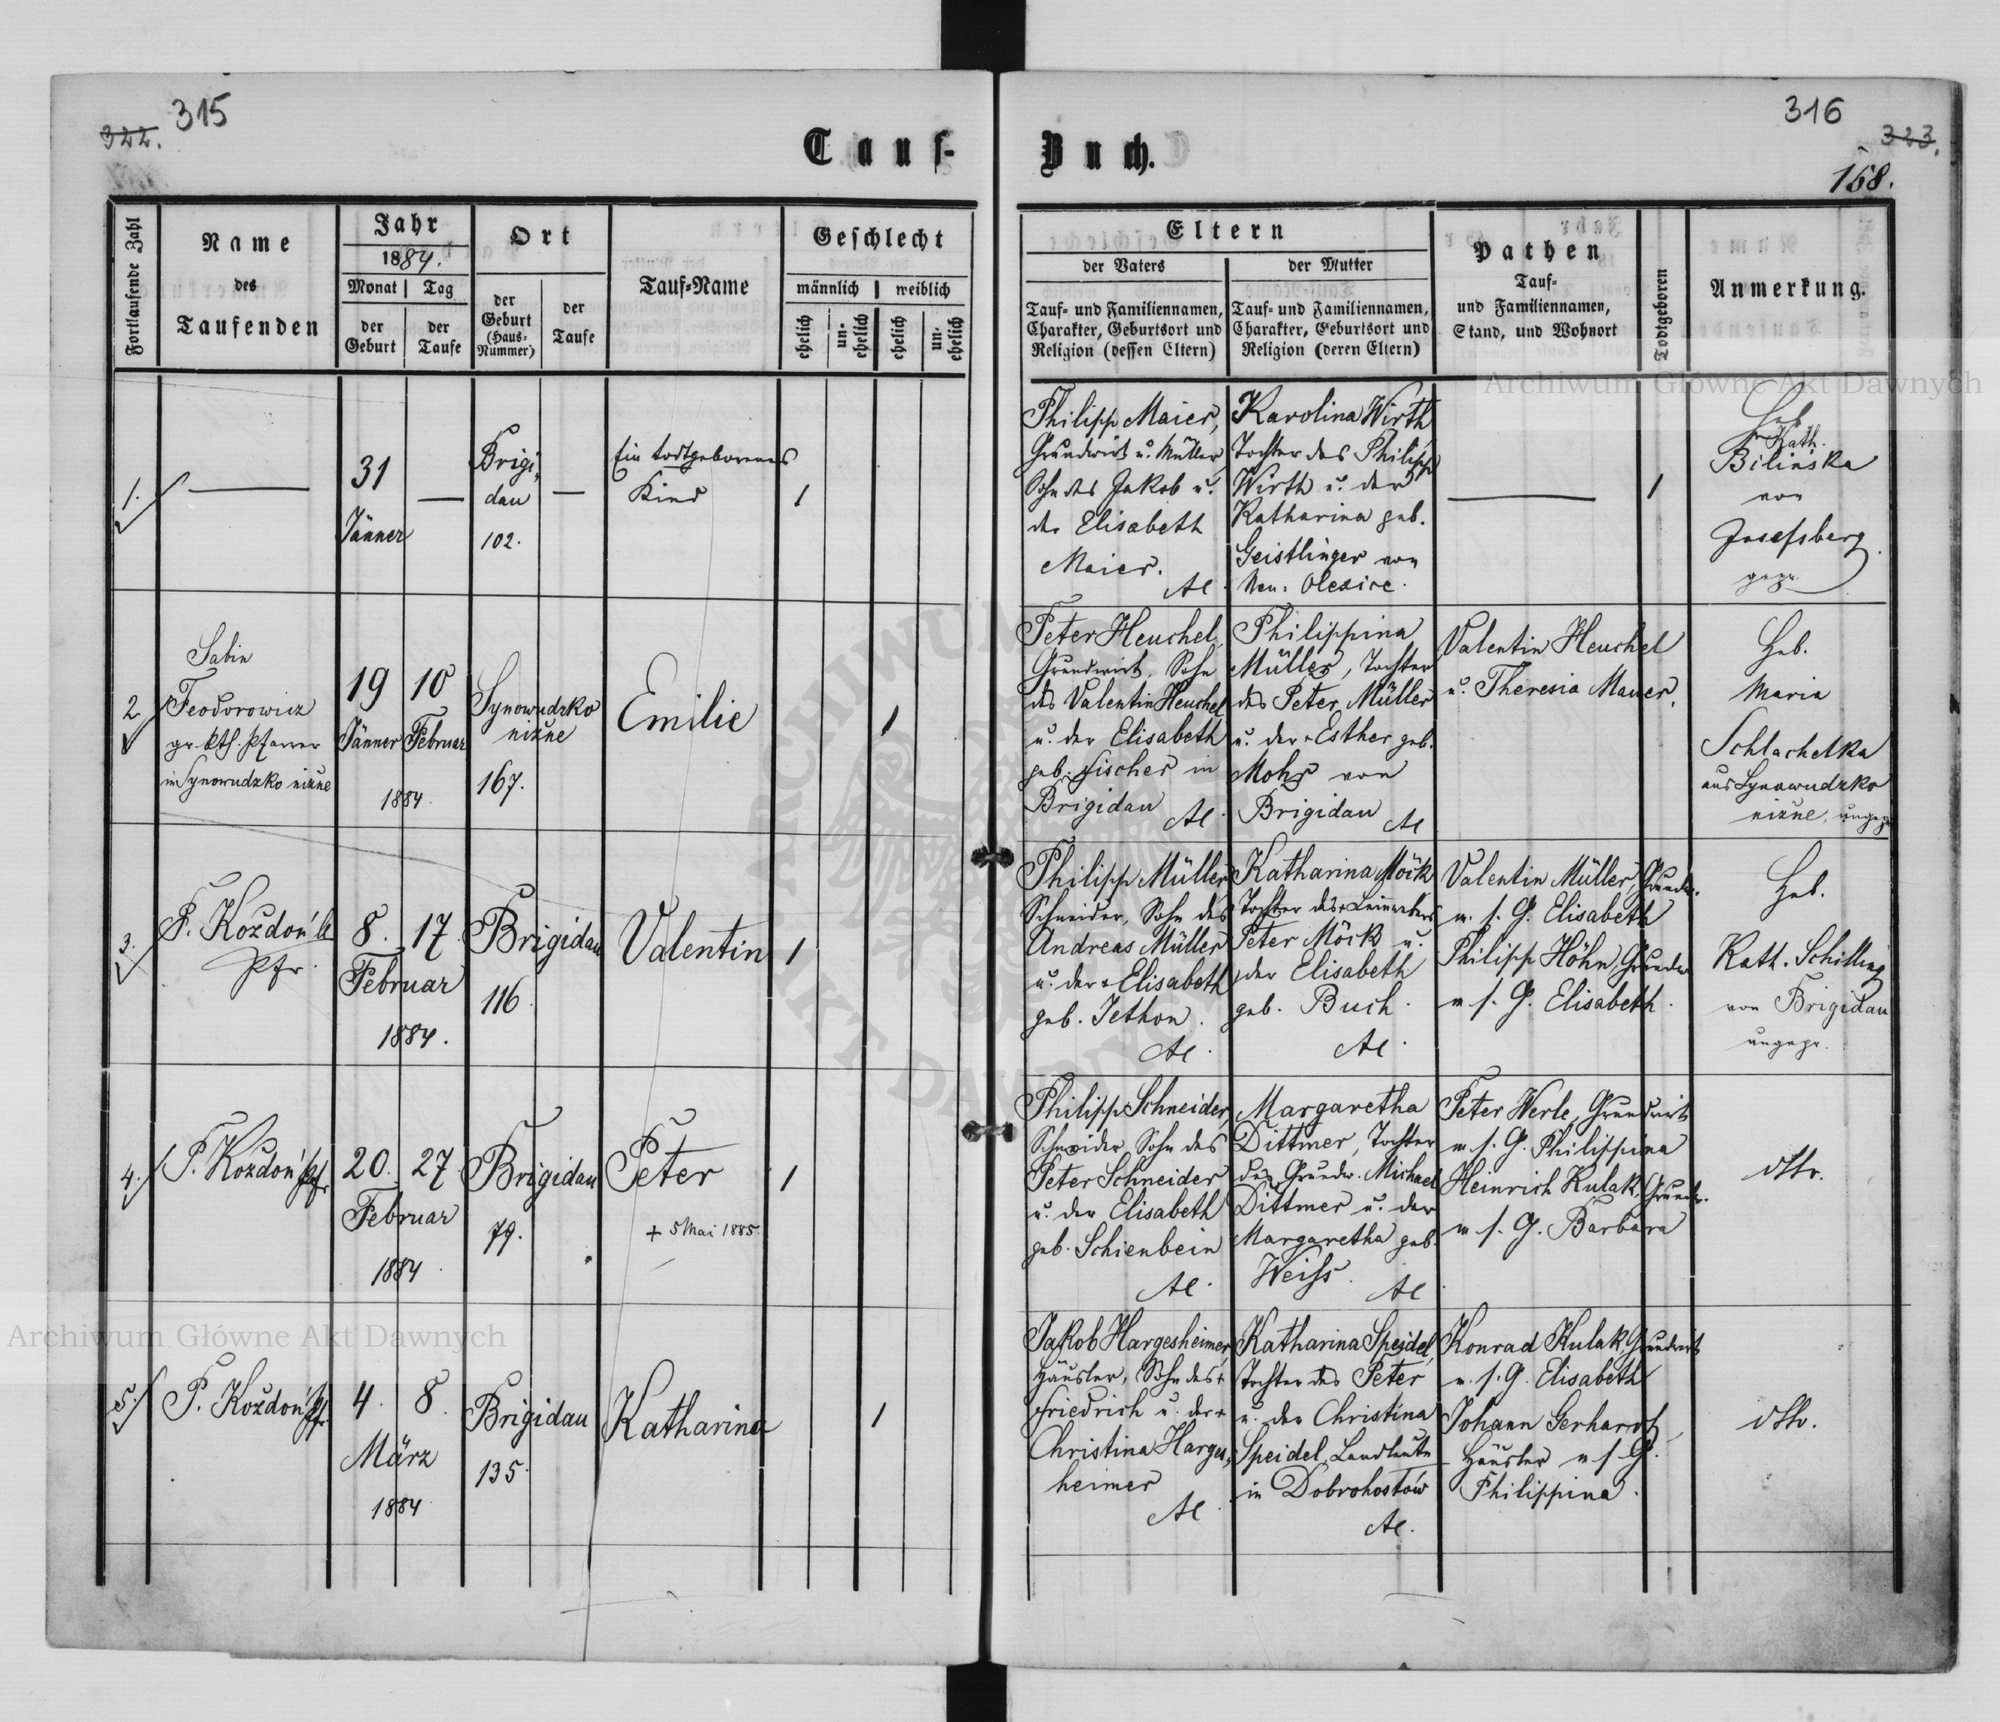 315
322.
Tauf-
Fortlaufende Zahl
Name
des
Taufenden
Jahr
1884.
Monat
Tag
der
Geburt
der
Taufe
Ort
der
Geburt
(Haus-
Nummer)
der
Taufe
Tauf-Name
Geschlecht
männlich
weiblich
ehelich
un-
ehelich
ehelich
un-
ehelich
1.
31
Jänner
Brigi-
dau
102.
Ein todtgeborenes
Kind
1
2.
Sabin
Feodorowicz
gr. kth. Pfarrer
in Synowudzko nizne
19
10
Jänner
Februar
1884.
Synowudzko
nizne
167.
Emilie
1
3.
P. Kozdoń
Pfr.
8.
17.
Februar
1884.
Brigidau
116.
Valentin
1
4.
P. Kozdoń Pfr.
20.
27
Februar
1884.
Brigidau
79.
Peter
+ 5 Mai 1885.
1
5.
P. Kozdoń Pfr.
4.
8.
März
1884.
Brigidau
135.
Katharina
1
316
323.
168.
Buch.
Eltern
der Vaters
der Mutter
Tauf- und Familiennamen,
Charakter, Geburtsort und
Religion (dessen Eltern)
Tauf- und Familiennamen,
Charakter, Geburtsort und
Religion (deren Eltern)
Pathen
Tauf-
und Familiennamen,
Stand, und Wohnort
Todtgeboren
Anmerkung.
Philipp Maier,
Grundwirt u. Müller
Sohn des Jakob u.
der Elisabeth
Maier.
AC.
Karolina Wirth
Tochter des Philipp
Wirth u. der
Katharina geb.
Geistlinger von
Neu-Olexice.
1
Heb.
Kath.
Bilińska
von
Josefsberg
gepr.
Peter Heuchel,
Grundwirt, Sohn
des Valentin Heuchel
u. der Elisabeth
geb. Fischer in
Brigidau
AC.
Philippina
Müller, Tochter
des Peter Müller
u. der + Esther geb.
Mohr von
Brigidau
AC
Valentin Heuchel
u. Theresia Mauer.
Heb.
Maria
Schlachetka
aus Synowudzko
nizne, ungepr.
Philipp Müller
Schneider, Sohn des
Andreas Müller
u. der + Elisabeth
geb. Jethon.
AC.
Katharina Möck
Tochter des + Leinwebers
Peter Möck u.
der Elisabeth
geb. Buch.
AC.
Valentin Müller, Grundw.
m. s. G. Elisabeth
Philipp Höhn Grundw
m s. G. Elisabeth.
Heb.
Kath. Schilling
von Brigidau
ungepr.
Philipp Schneider,
Schneider Sohn des
Peter Schneider
u. der Elisabeth
geb. Schienbein
AC.
Margaretha
Dittmer, Tochter
des Grundw. Michael
Dittmer u. der
Margaretha geb.
Weiss.
AC
Peter Werle, Grundwirt
m. s. G. Philippina
Heinrich Kulak, Grundw.
m s. G. Barbara
dtto.
Jakob Hargesheimer,
Häusler, Sohn des +
Friedrich u. der +
Christina Harges-
heimer
AC
Katharina Speidel,
Tochter des Peter
u. der Christina
Speidel, Landleute
in Dobrohostów
AC.
Konrad Kulak, Grundwirt
m. s. G. Elisabeth
Johann Gerhardt,
Häusler m s. G.
Philippina.
dtto.
Archiwum Główne Akt Dawnych
Archiwum Główne Akt Dawnych
ARCHIWUM
AKT DAWNYCH